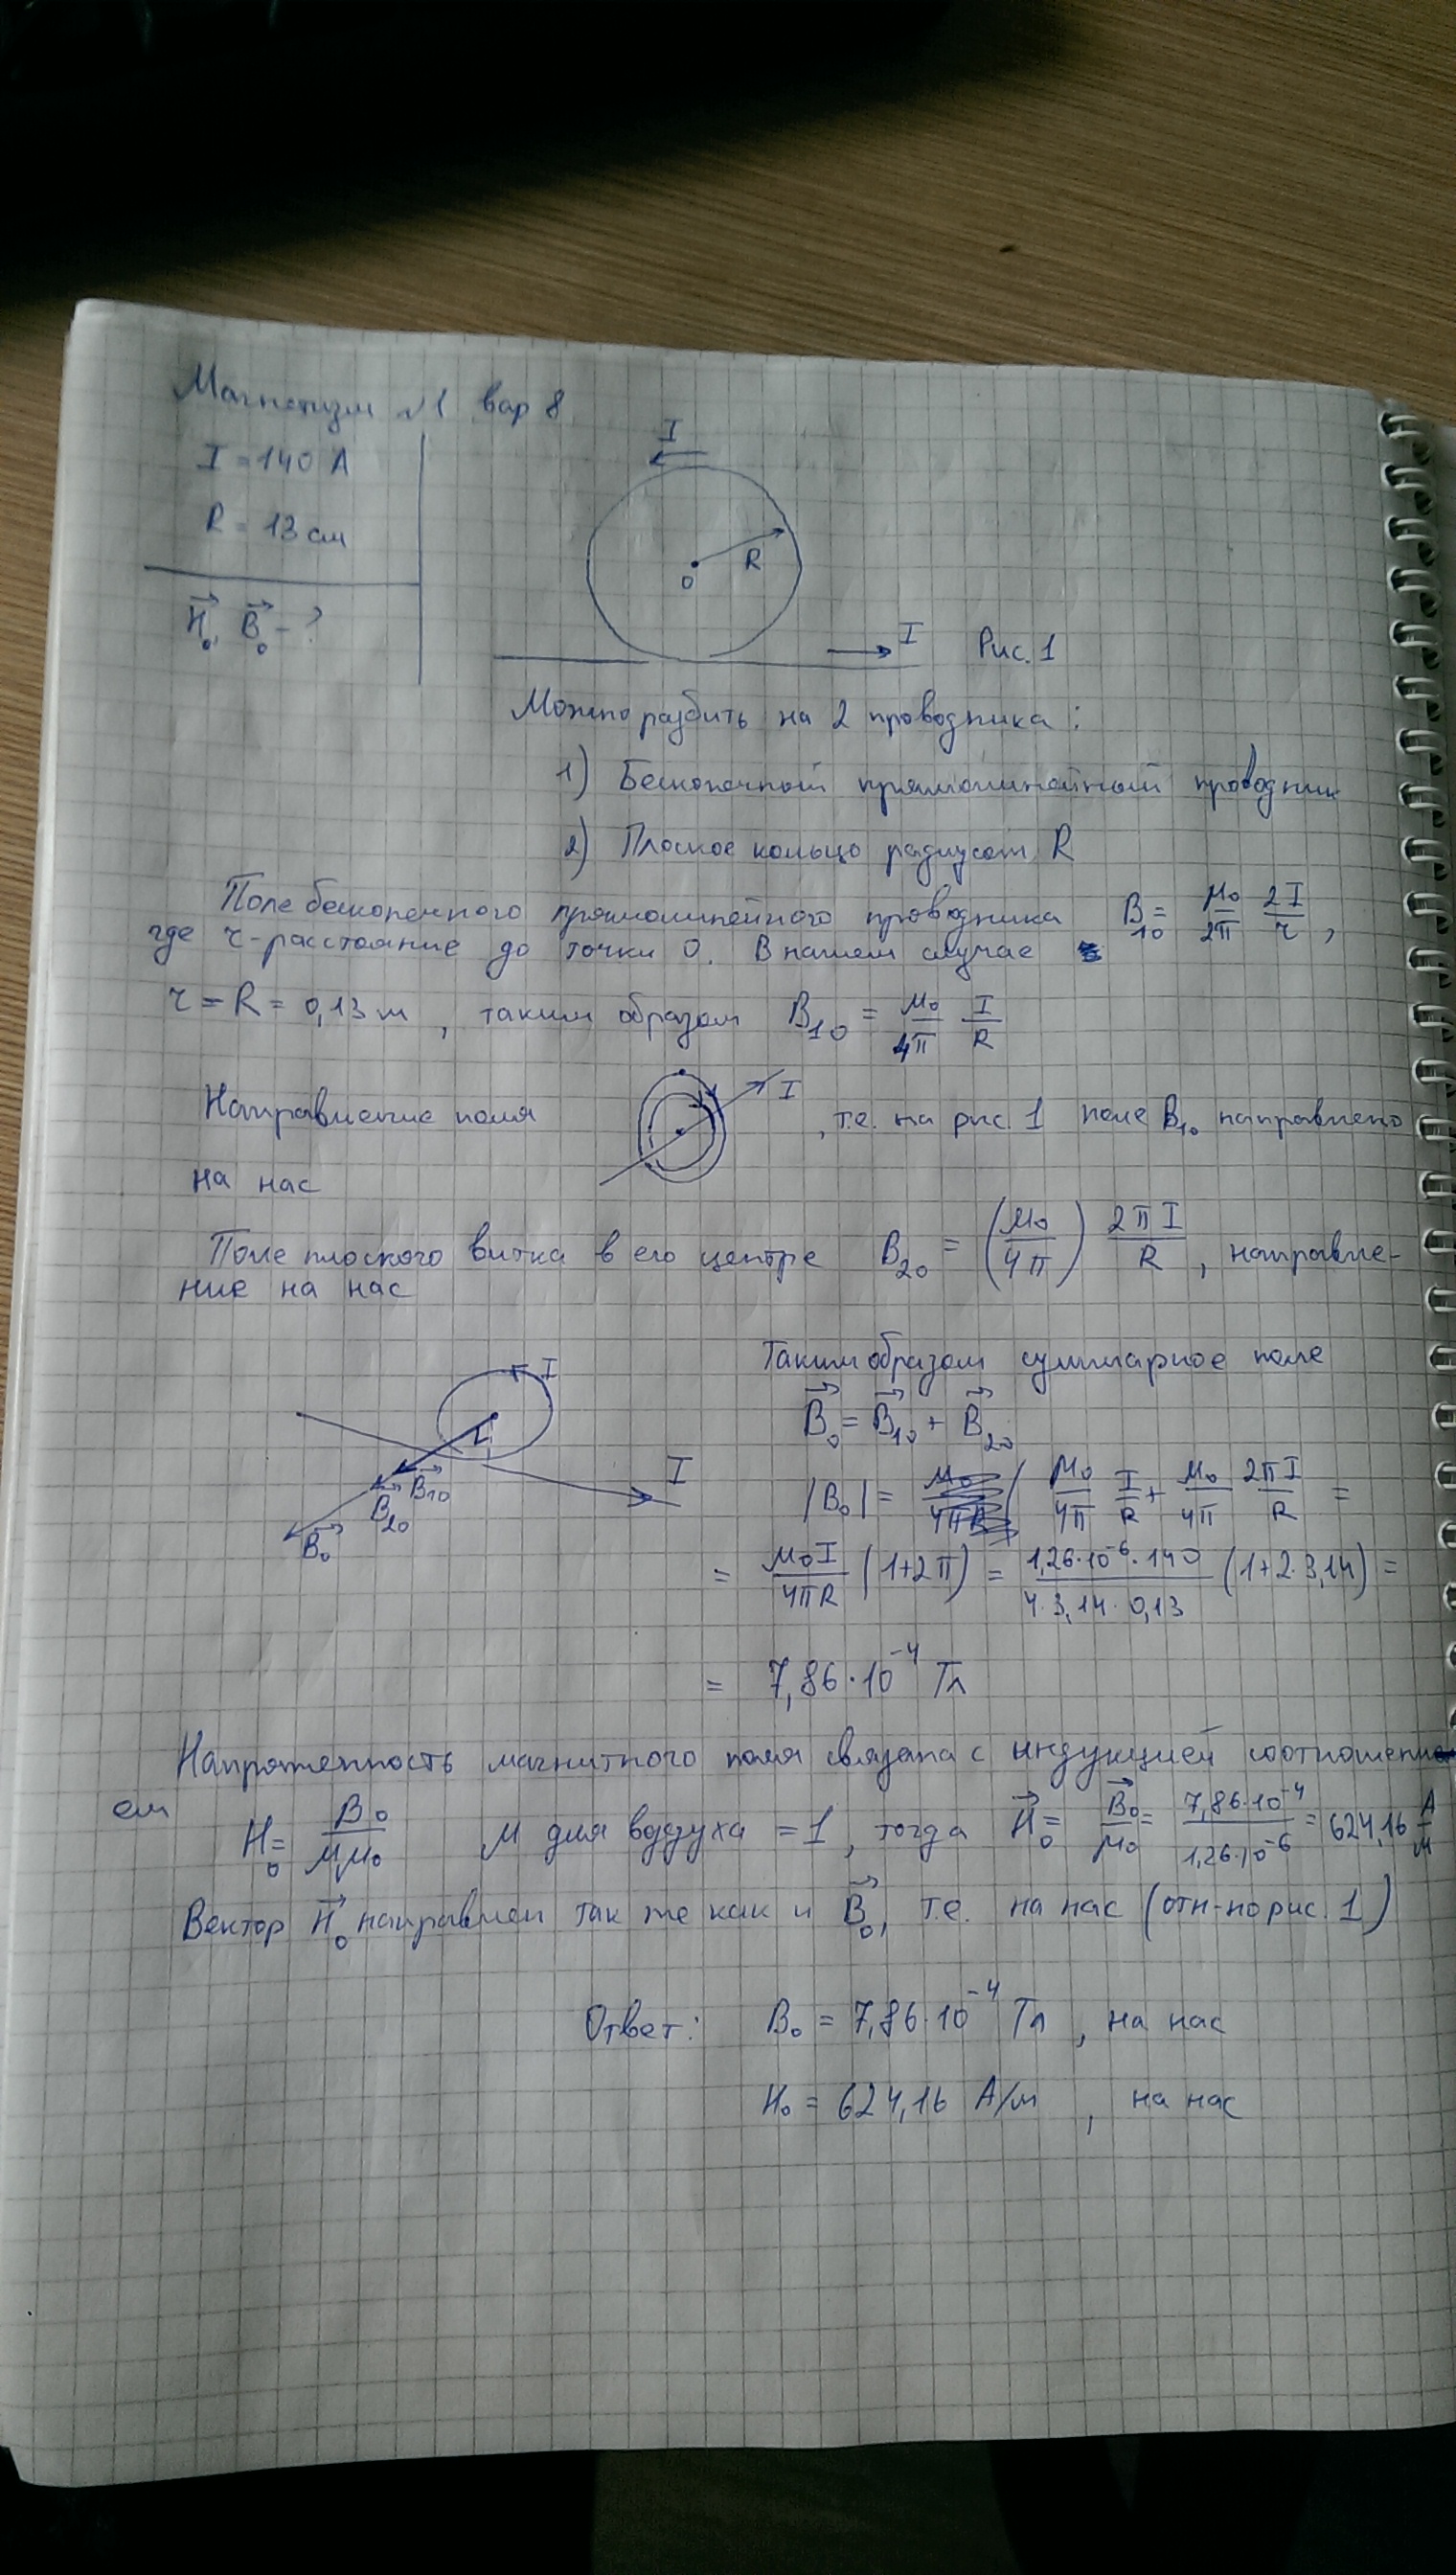 Магнетизм №1 вар 8
I = 140 А
R = 13 см
H⃗₀, B⃗₀ - ?
I
R
0
I
Рис. 1
Можно разбить на 2 проводника:
1) Бесконечный прямолинейный проводник
2) Плоское кольцо радиусом R
Поле бесконечного прямолинейного проводника B₁₀ = μ₀/2π 2I/r,
где r - расстояние до точки O. В нашем случае
r = R = 0,13 м, таким образом B₁₀ = μ₀/4π I/R
Направление поля I, т.е. на рис. 1 поле B₁₀ направлено
на нас
Поле плоского витка в его центре B₂₀ = (μ₀/4π) 2πI/R, направле-
ние на нас
I
I
B⃗₁₀
B⃗₂₀
B⃗₀
Таким образом суммарное поле
B⃗₀ = B⃗₁₀ + B⃗₂₀
|B₀| = μ₀/4π I/R + μ₀/4π 2πI/R =
= μ₀I/4πR (1+2π) = 1,26·10⁻⁶·140/4·3,14·0,13 (1+2·3,14) =
= 7,86·10⁻⁴ Тл
Напряженность магнитного поля связана с индукцией соотношени-
ем H₀ = B₀/μμ₀ μ для воздуха = 1, тогда H⃗₀ = B⃗₀/μ₀ = 7,86·10⁻⁴/1,26·10⁻⁶ = 624,16 А/м
Вектор H⃗₀ направлен так же как и B⃗₀, т.е. на нас (отн-но рис. 1)
Ответ: B₀ = 7,86·10⁻⁴ Тл, на нас
H₀ = 624,16 А/м, на нас